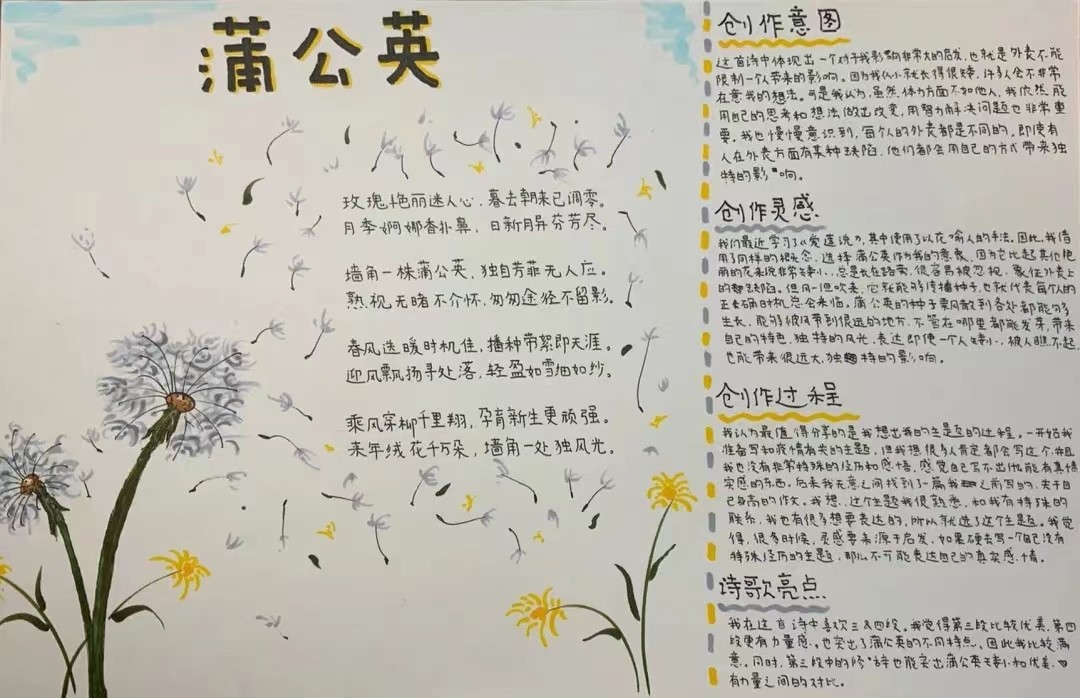 蒲公英
玫瑰艳丽迷人心，暮去朝来已凋零。
月季婀娜香扑鼻，日新月异芬芳尽。
墙角一株蒲公英，独自芳菲无人应。
熟视无睹不介怀，匆匆途径不留影。
春风送暖时机佳，播种带絮即天涯。
迎风飘扬寻处落，轻盈如雪细如纱。
乘风穿柳千里翔，孕育新生更顽强。
来年绒花千万朵，墙角一处独风光。
创作意图
这首诗中体现出一个对于我影响非常大的启发，也就是外表不能
限制一个人带来的影响。因为我从小就长得很矮，许多人会不非常
在意我的想法。可是我认为，虽然体力方面不如他人，我依然能
用自己的思考和想法做出改变，用努力解决问题也非常重
要。我也慢慢意识到，每个人的外表都是不同的。即使有
人在外表方面有某种缺陷，他们都会用自己的方式带来独
特的影响。
创作灵感
我们最近学习了《爱莲说》，其中使用了以花喻人的手法。因此，我借
用了同样的概念，选择蒲公英作为我的意象，因为它比起其他艳
丽的花来说非常矮小，总是长在路旁，很容易被忽视，象征外表上
的缺陷。但风一但吹来，它就能够传播种子，也就代表每个人的
正确时机总会来临。蒲公英的种子乘风散到各处都能够
生长，能够被风带到很远的地方，不管在哪里都能发芽，带来
自己的特色，独特的风光，表达即使一个人矮小，被人瞧不起，
也能带来很远大，独特的影响。
创作过程
我认为最值得分享的是我想出我的主题的过程。一开始我
准备写和疫情有关的主题，但我想很多人肯定都会写这个，并且
我也没有非常特殊的经历和感悟，感觉自己写不出能有真情
实感的东西。后来我无意之间找到了一篇我之前写的，关于自
己身高的作文。我想，这个主题我很熟悉，和我有特殊的
联系，我也有很多想要表达的，所以就选了这个主题。我觉
得，很多时候，灵感要来源于启发，如果硬去写一个自己没有
特殊经历的主题，那么不可能表达自己的真实感情。
诗歌亮点
我在这首诗中喜欢三&四段。我觉得第三段比较优美，第四
段更有力量感，也突出了蒲公英的不同特点，因此我比较满
意。同时，第三段中的修辞也能突出蒲公英矮小和优美，
有力量之间的对比。